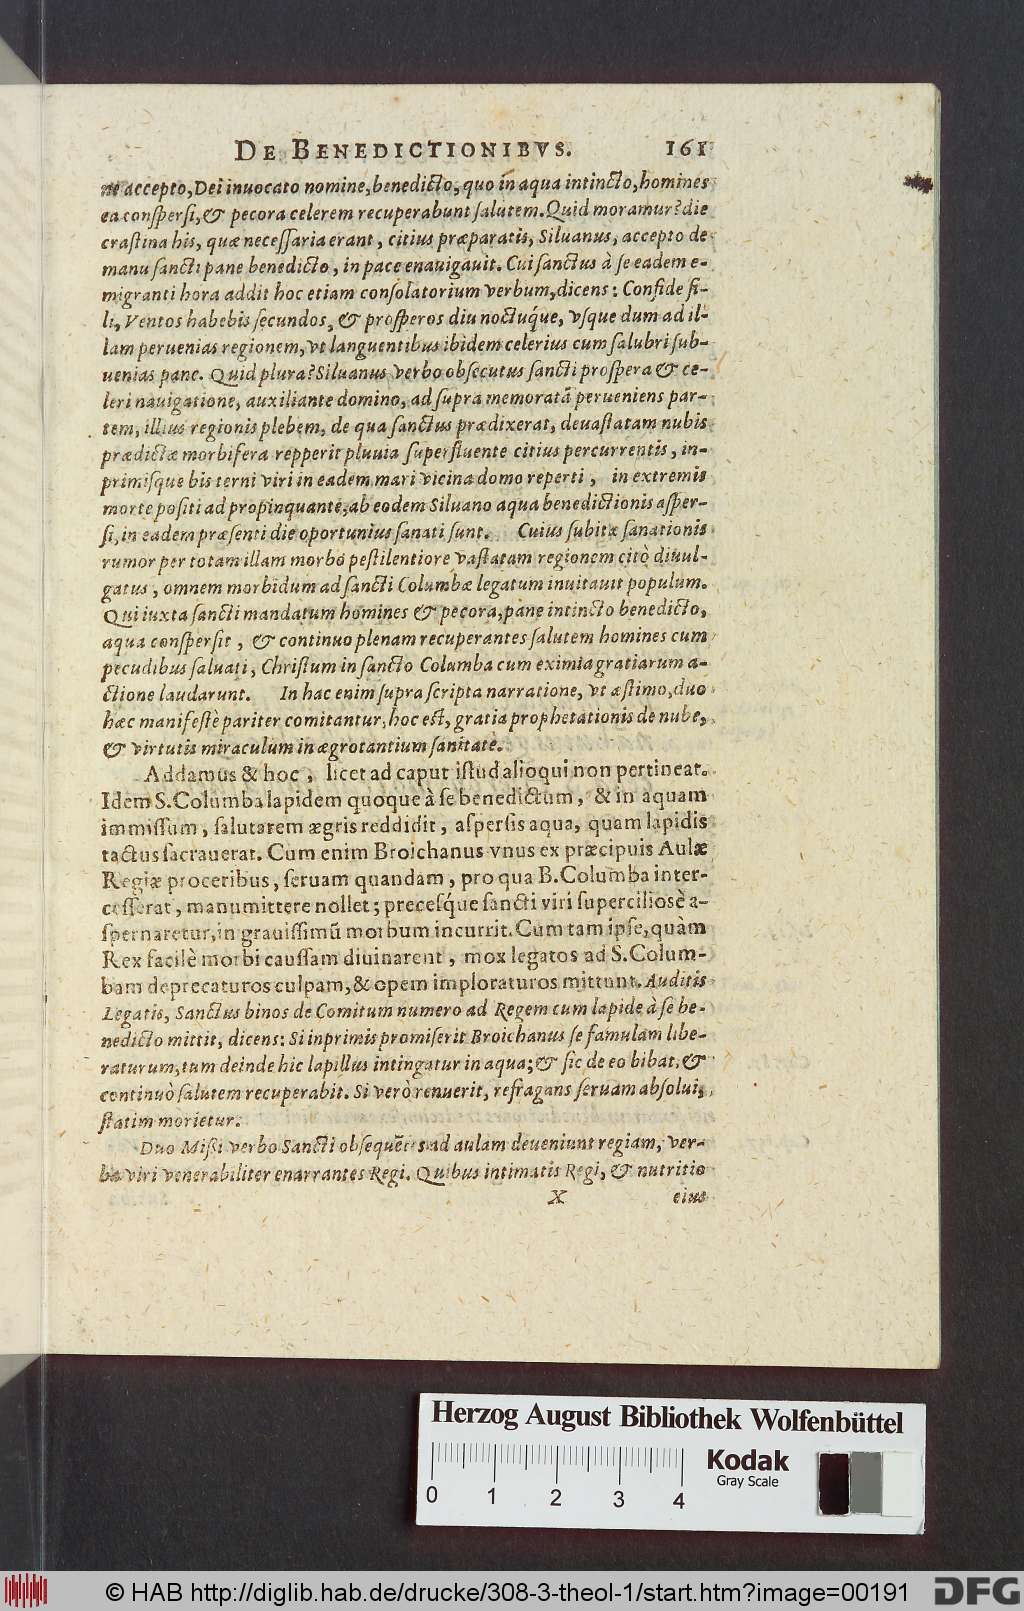 DE BENEDICTIONIBVS. 161
ne accepto, Dei inuocato nomine, benedicto, quo in aqua intincto, homines
ea conspersi, & pecora celerem recuperabunt salutem. Quid moramur? die
crastina his, quæ necessaria erant, citius præparatis, Siluanus, accepto de
manu sancti pane benedicto, in pace enauigauit. Cui sanctus à se eadem e-
migranti hora addit hoc etiam consolatorium verbum, dicens: Confide fi-
li, Ventos habebis secundos, & prosperos diu noctuq́ue, vsque dum ad il-
lam peruenias regionem, vt languentibus ibidem celerius cum salubri sub-
uenias pane. Quid plura? Siluanus verbo obsecutus sancti prospera & ce-
leri nauigatione, auxiliante domino, ad supra memoratã perueniens par-
tem, illius regionis plebem, de qua sanctus prædixerat, deuastatam nubis
prædictæ morbifera repperit pluuia superfluente citius percurrentis, in-
primisque bis terni viri in eadem mari vicina domo reperti, in extremis
morte positi ad propinquante, ab eodem Siluano aqua benedictionis asper-
si, in eadem præsenti die oportunius sanati sunt. Cuius subitæ sanationis
rumor per totam illam morbo pestilentiore vastatam regionem citò diuul-
gatus, omnem morbidum ad sancti Columbæ legatum inuitauit populum.
Qui iuxta sancti mandatum homines & pecora, pane intincto benedicto,
aqua conspersit, & continuo plenam recuperantes salutem homines cum
pecudibus saluati, Christum in sancto Columba cum eximia gratiarum a-
ctione laudarunt. In hac enim supra scripta narratione, vt æstimo, duo
hæc manifestè pariter comitantur, hoc est, gratia prophetationis de nube,
& virtutis miraculum in ægrotantium sanitate.
Addamus & hoc, licet ad caput istud alioqui non pertineat.
Idem S. Columba lapidem quoque à se benedictum, & in aquam
immissum, salutarem ægris reddidit, aspersis aqua, quam lapidis
tactus sacrauerat. Cum enim Broichanus vnus ex præcipuis Aulæ
Regiæ proceribus, seruam quandam, pro qua B. Columba inter-
cesserat, manumittere nollet; precesq́ue sancti viri superciliosè a-
spernaretur, in grauissimũ morbum incurrit. Cum tam ipse, quàm
Rex facilè morbi caussam diuinarent, mox legatos ad S. Colum-
bam deprecaturos culpam, & opem imploraturos mittunt. Auditis
Legatis, Sanctus binos de Comitum numero ad Regem cum lapide à se be-
nedicto mittit, dicens: Si inprimis promiserit Broichanus se famulam libe-
raturum, tum deinde hic lapillus intingatur in aqua; & sic de eo bibat, &
continuò salutem recuperabit. Si verò renuerit, refragans seruam absolui,
statim morietur.
Duo Missi verbo Sancti obsequẽtes ad aulam deueniunt regiam, ver-
ba viri venerabiliter enarrantes Regi. Quibus intimatis Regi, & nutritio
X eius
Herzog August Bibliothek Wolfenbüttel
0 1 2 3 4
Kodak
Gray Scale
© HAB http://diglib.hab.de/drucke/308-3-theol-1/start.htm?image=00191
DFG